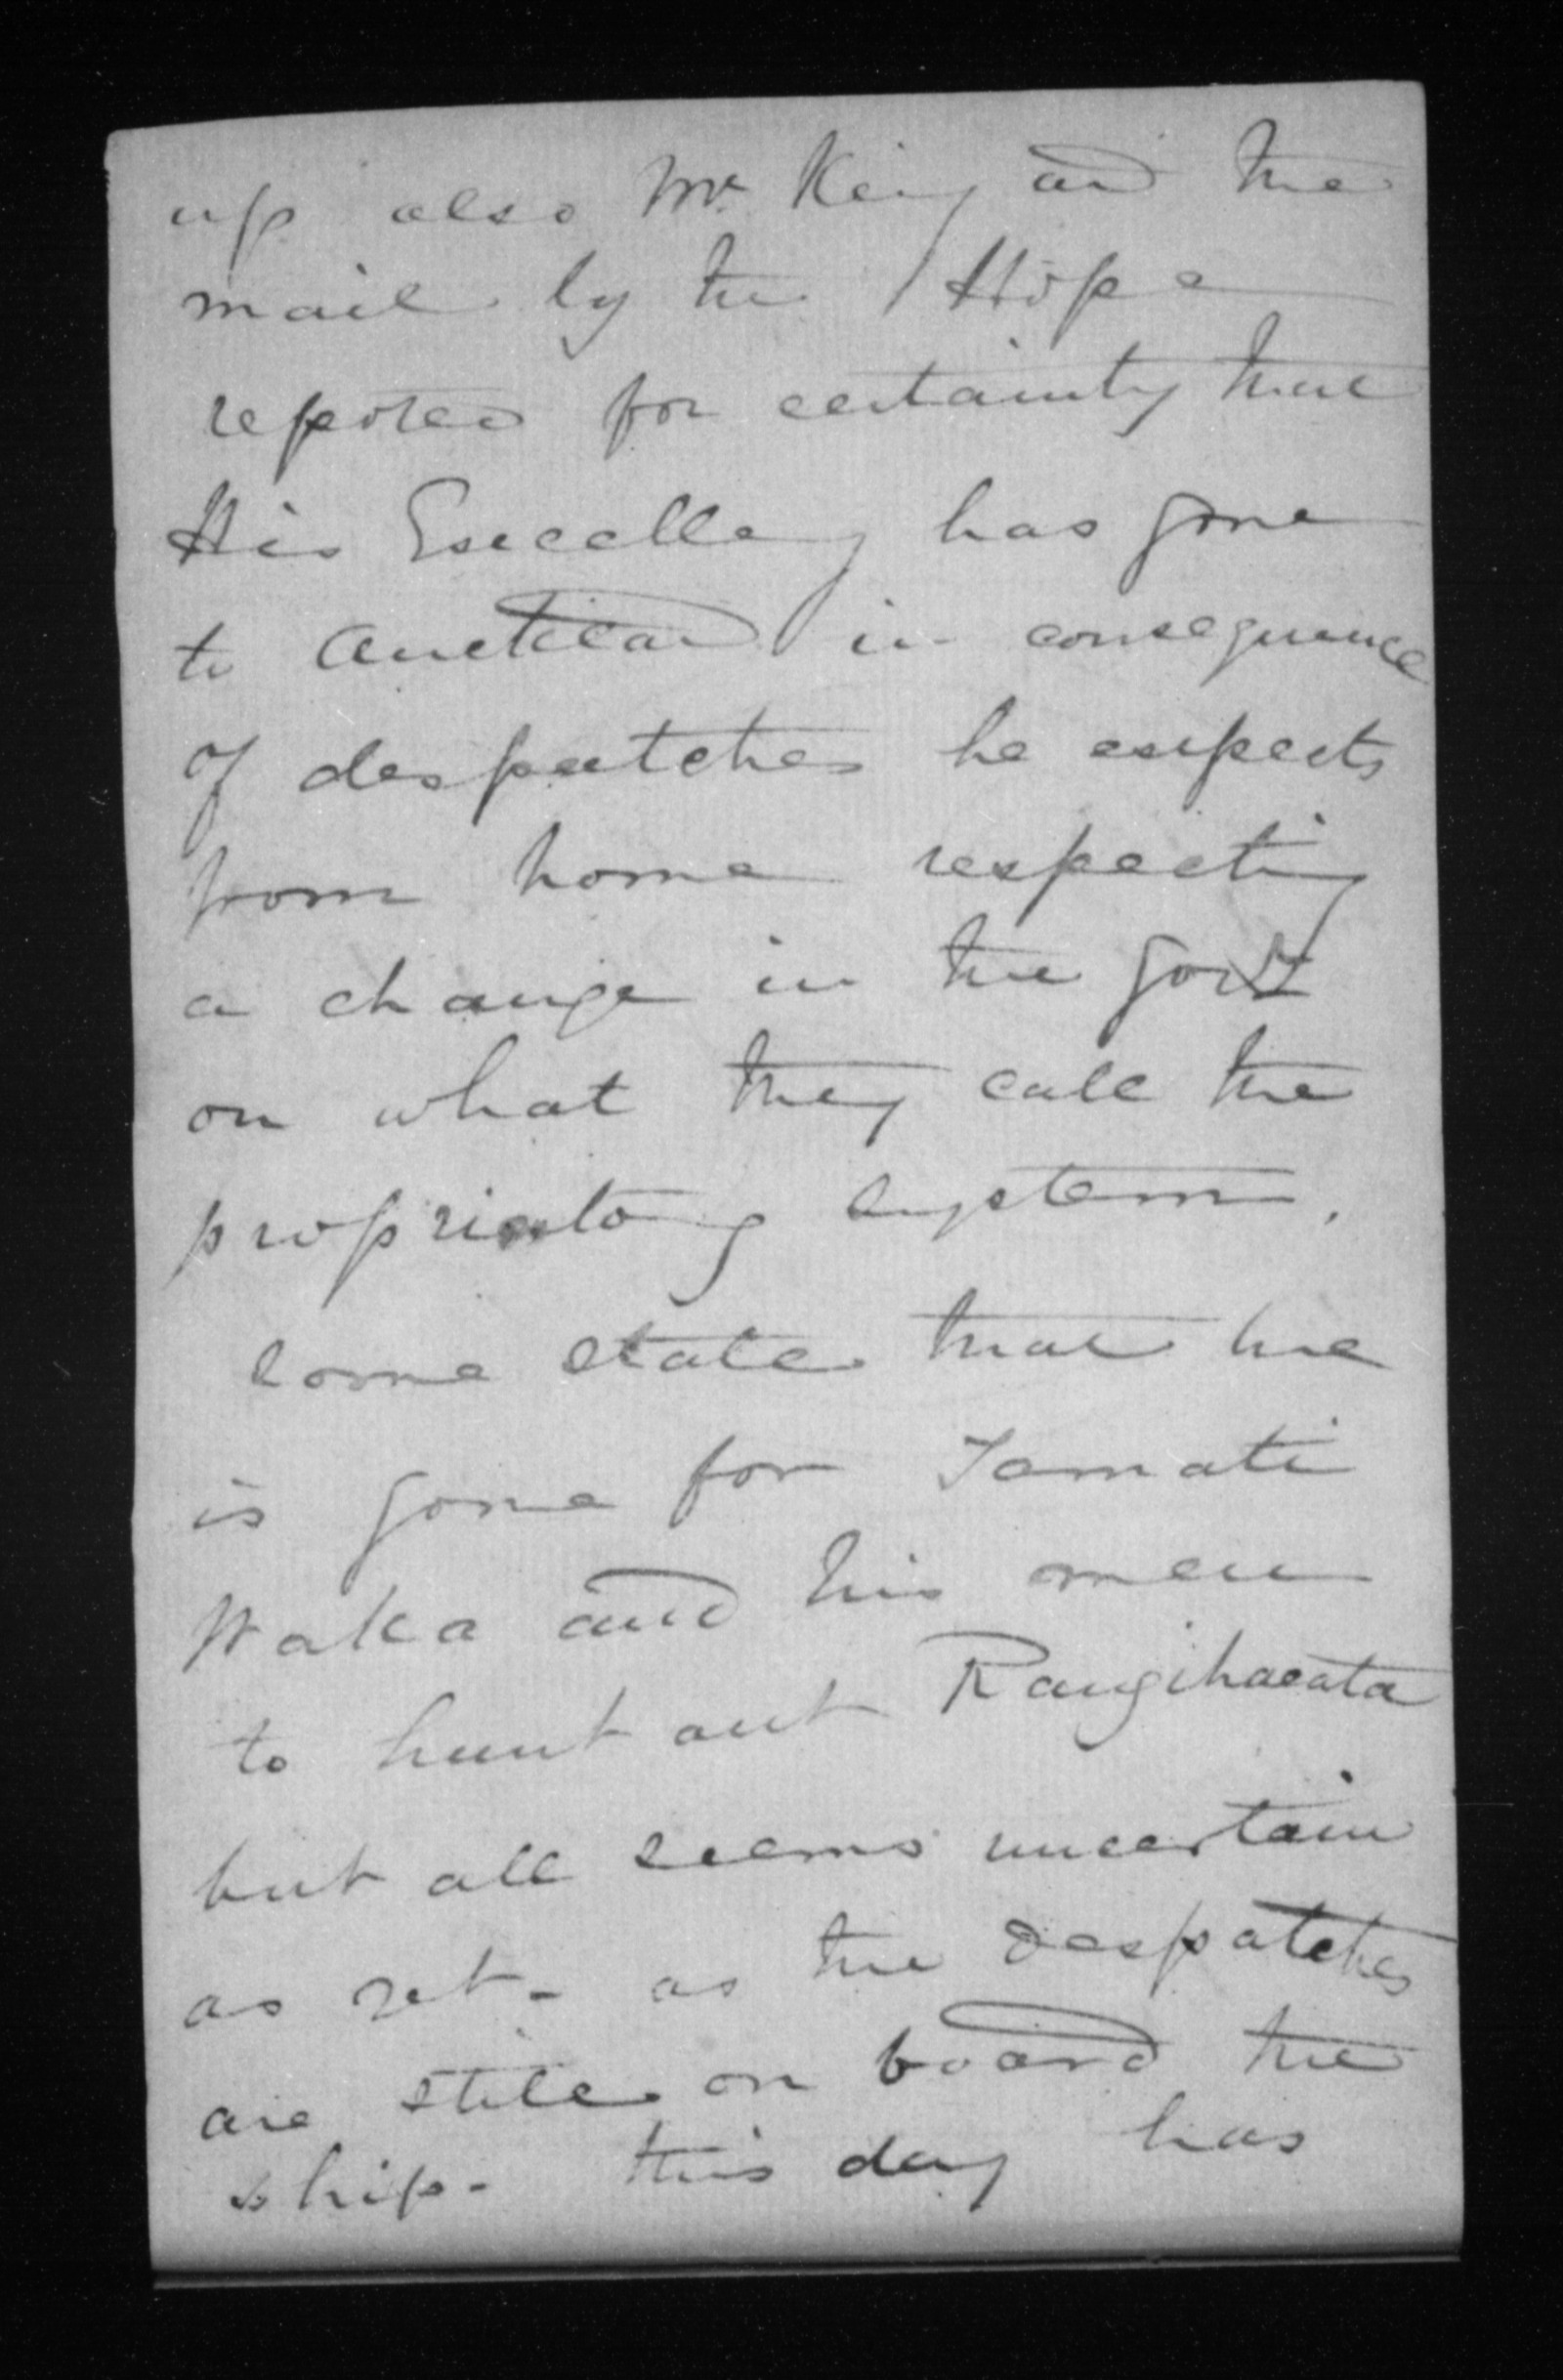 up also Mr. King and the
mail by the Hope
reported for certainty that
His Excellency has gone
to Auckland in consequence
of despatches he expects
from home respecting
a change in the Govt
on what they call the
propriatory system,
some state that he
is gone for Tamati
Waka and his men
to hunt out Rangihaeata
but all seems uncertain
as yet - as the despatches
are still on board the
ship - this day has